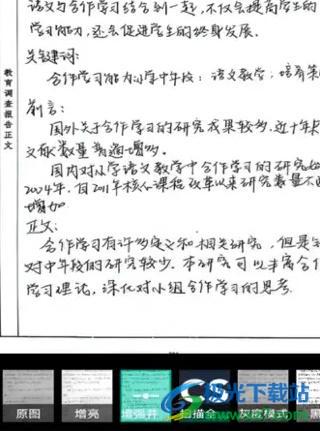 语文与合作学习结合到一起，不仅会提高学生的
学习能力，还会促进学生的终身发展。
关键词：
合作学习能力；小学中年段；语文教学；培养
前言：
国外关于合作学习的研究成果较多，近十年
文献数量普遍增多。
国内对小学语文教学中合作学习的研究
年，自2011年核心课程改革以来研究数量不
增加
正文：
合作学习有许多定义和相关研究，但是
对中年段的研究较少。本研究可以丰富合作
学习理论，深化对小组合作学习的思考.
教育调查报告正文
CS
极光下载站
原图
增亮
增强并
扫描全
灰度模式
黑